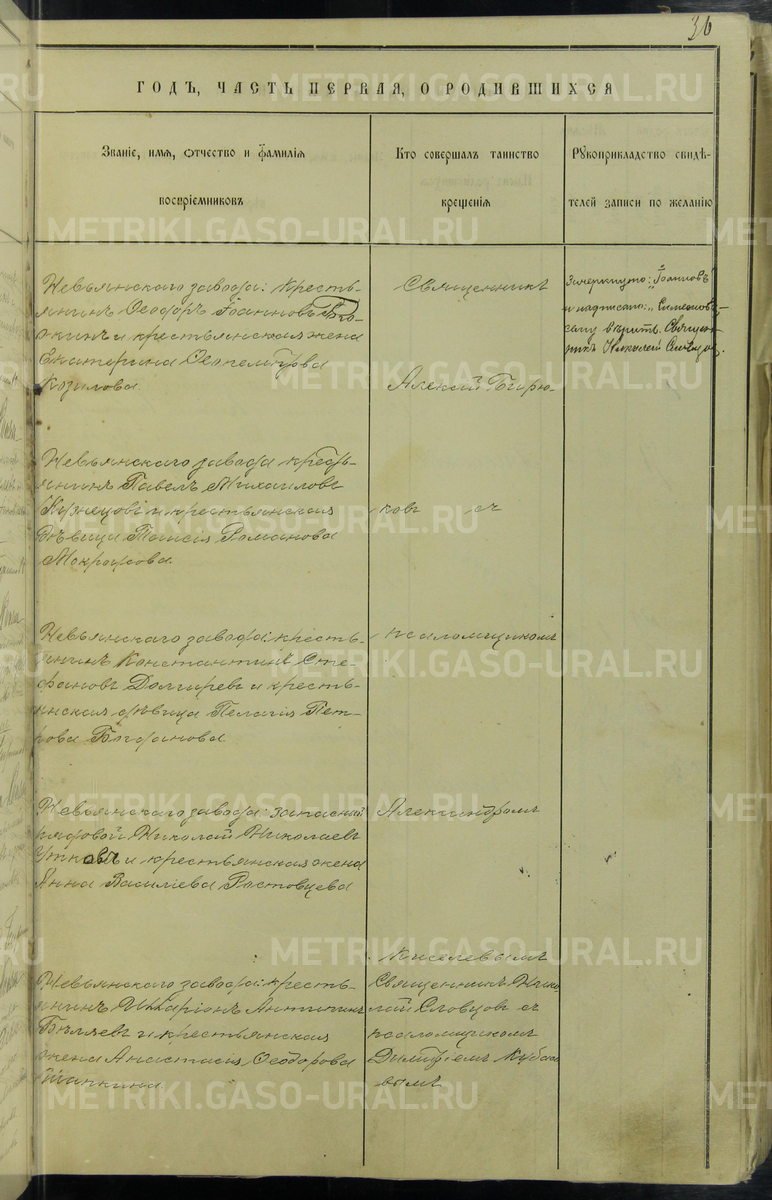 36
ГОДЪ, ЧАСТЬ ПЕРВАЯ, О РОДИВШИХСЯ
Званіе, имя, отчество и фамилія
воспріемниковъ
Кто совершалъ таинство
крещенія
Рукоприкладство свидѣ-
телей записи по желанію
Невьянскаго завода: кресть-
янинъ Ѳеодоръ Іоанновъ
и крестьянская жена
Екатерина
Козилова
Священникъ
Алексій Бирю-
Зачеркнуто: „Іоанновъ"
и надписано: „Симеонов
вѣрить. Священ-
никъ Николай Словцов.
Невьянскаго завода кресть-
янинъ Павелъ Михаиловъ
Кузнецовъ и крестьянская
дѣвица Таисія Романова
Мокрасова.
ковъ съ
Невьянскаго завода: кресть-
янинъ Константинъ Сте-
фановъ Долгирев и кресть-
янская дѣвица Пелагія Пет-
рова Богданова
псаломщикомъ
Невьянскаго завода: запасный
рядовой Николай Николаевъ
Утковъ и крестьянская жена
Анна Василіева Ростовцева
Александромъ
Невьянскаго завода: кресть-
янинъ Иларіонъ Антипинъ
Бѣляевъ и крестьянская
жена Анастасія Ѳеодорова
Шапкина
Киселевымъ
Священникъ Нико
лай Словцовъ съ
псаломщикомъ
Димитріемъ Кубаса
вымъ
METRIKI.GASO-URAL.RU